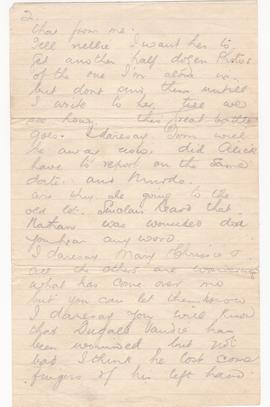 2.
that from me.
Tell Nellie I want her to
get another half dozen Photos
of the one I'm alone in
but dont give them untill
I write to her, till we
see how this great battle
goes. I daresay Tom will
be away now. did Alick
have to report on the same
date. and
are they all going to the
old Lot. Sinclair heard that
Nathan was wounded did
you hear any word.
I daresay Mary Chrissie &
all the others are wondering
what has come over me
but you can let them know
I daresay you will know
that Dugald has
been wounded but not
bad I think he lost some
fingers of his left hand